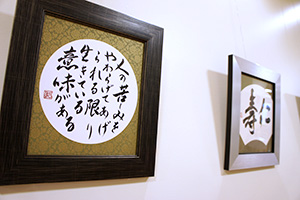 人の苦しみを
やわらげてあげ
られる限り
生きている
意味がある
寿
仁